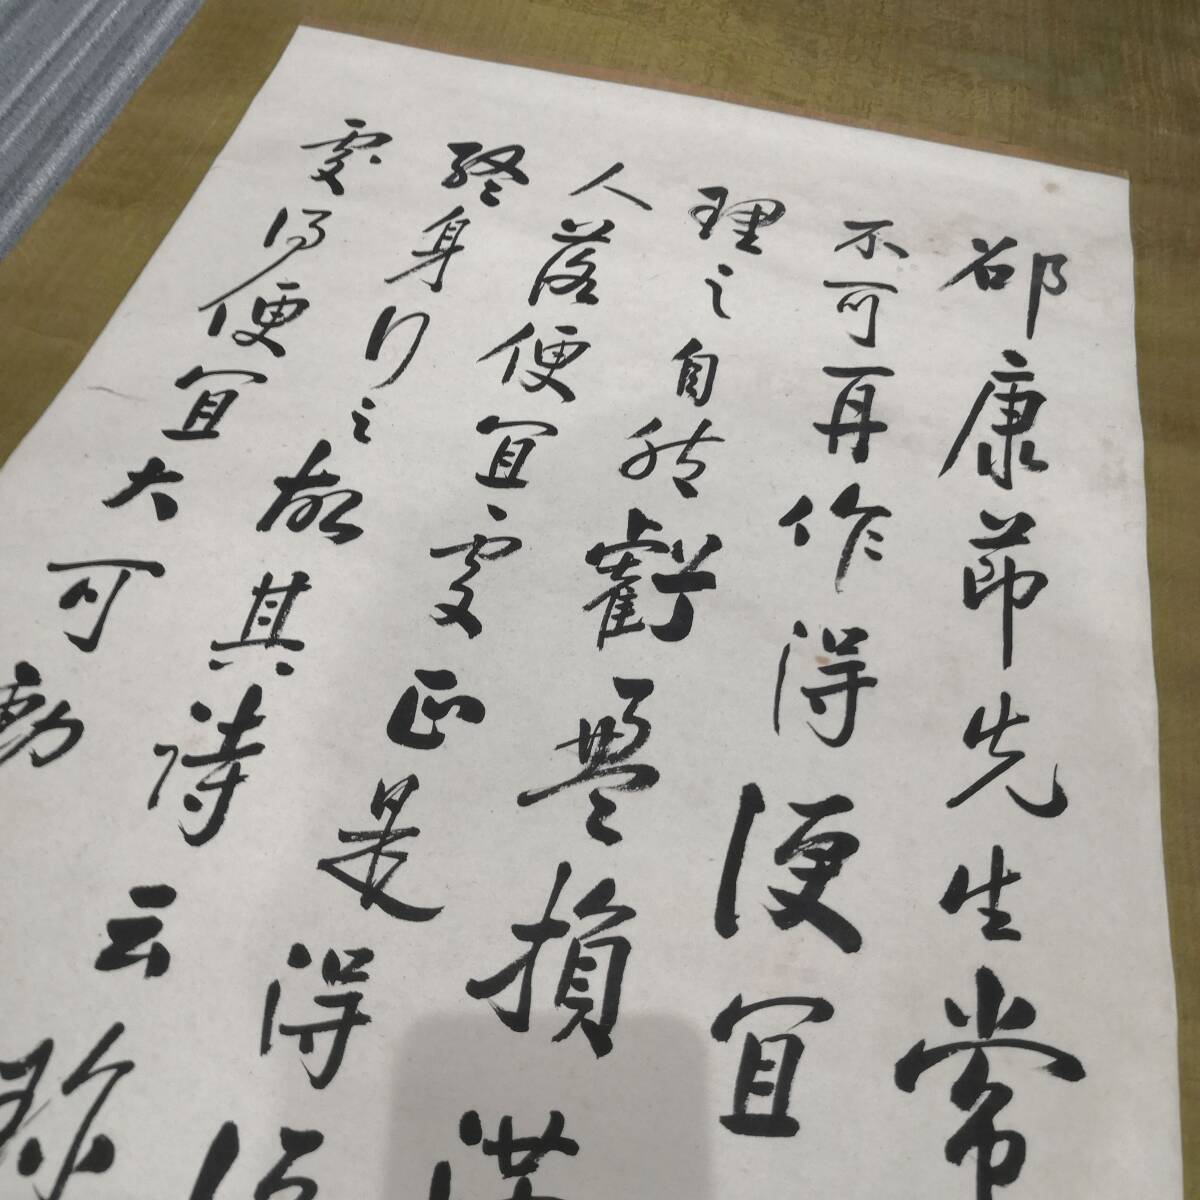 邵康节先生常
不可再作得便宜
理之自然虧盈損满
人落便宜處正是得便
終身行之故其詩云
處得便宜大可動